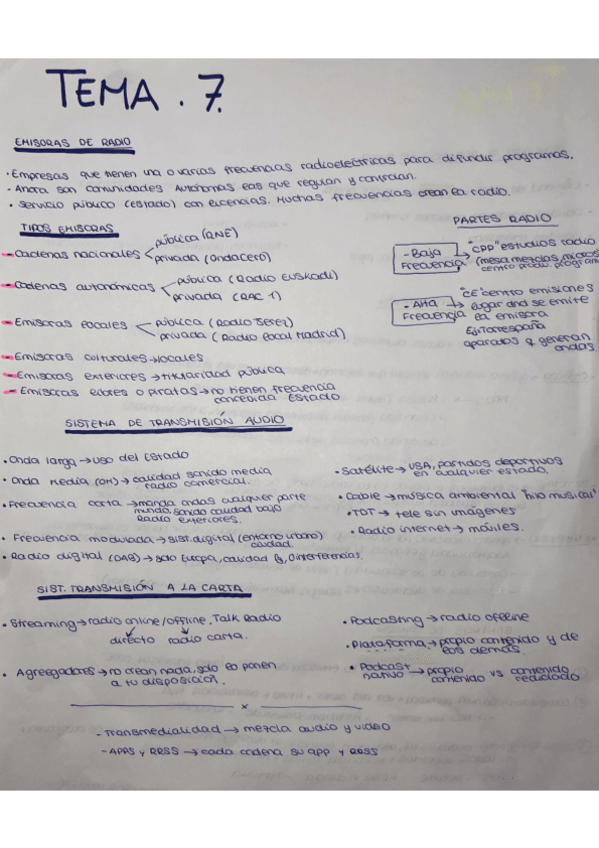 TEMA. 7.
EMISORAS DE RADIO
· Empresas que tienen una o varias frecuencias radioelectricas para difundir programas.
- Ahora son comunidades Autónomas las que regulan y controlan.
• Servicio público (estado) con licencias. Muchas frecuencias crean la radio.
TIPOS EMISORAS
- Cadenas nacionales
pública (RNE)
privada (Ondacero)
- Cadenas autonómicas
pública (Radio Euskadi)
privada (RAC 1)
- Emisoras locales
pública (Radio Jerez)
privada (Radio local Madrid)
- Emisoras culturales→locales
- Emisoras exteriores→titularidad pública
- Emisoras libres o piratas→no tienen frecuencia
concedida Estado
PARTES RADIO
- Baja
Frecuencia
→ "CPP" estudios radio
(mesa mezclas, micros)
centro produ. program
- Alta
Frecuencia
→ "CE" centro emisiones
lugar dnd se emite
la emisora
Ej: Torrespaña
aparatos q generan
ondas.
SISTEMA DE TRANSMISIÓN AUDIO
• Onda larga→uso del Estado
• Onda Media (OM)→calidad sonido media
radio comercial.
• Frecuencia corta→manda ondas cualquier parte
mundo, sonido calidad bajo
Radio exteriores.
• Frecuencia modulada→Sist. digital (entorno urbano)
calidad.
• Radio digital (DAB)→solo Europa, calidad, 0 interferencias.
• Satélite→USA, partidos deportivos
en cualquier estado.
• Cable→música ambiental "hilo musical"
• TDT→tele sin imágenes
• Radio internet→móviles.
SIST. TRANSMISIÓN A LA CARTA
• Streaming→radio online/offline. Talk Radio
directo radio carta.
• Agregadores→no crean nada, solo lo ponen
a tu disposición.
• Podcasting→radio offline
• Plataforma→propio contenido y de
los demás.
• Podcast
nativo→propio
contenido vs contenido
reciclado
x
- Transmedialidad→mezcla audio y video
- APPS y RRSS→cada cadena su app y RRSS